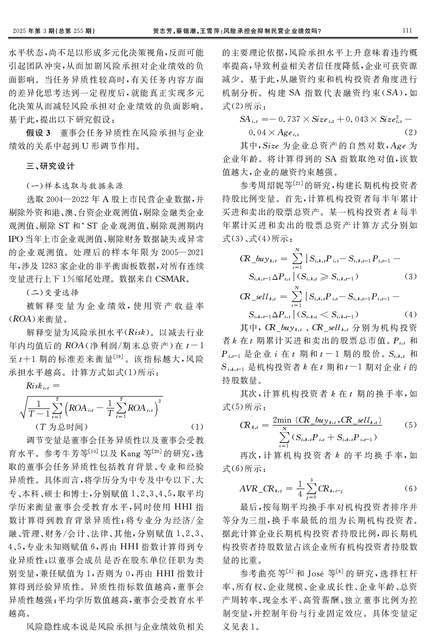 2025 年第 3 期(总第 255 期)
贺志芳,蔡锢潮,王雪萍:风险承担会抑制民营企业绩效吗?
111
水平状态,尚不足以形成多元化决策视角,反而可能
引起团队冲突,从而加剧风险承担对企业绩效的负
面影响。当任务异质性较高时,有关任务内容方面
的差异化思考达到一定程度后,就能真正实现多元
化决策从而减轻风险承担对企业绩效的负面影响。
基于此,提出以下研究假设:
假设 3 董事会任务异质性在风险承担与企业
绩效的关系中起到 U 形调节作用。
三、研究设计
(一)样本选取与数据来源
选取 2004—2022 年 A 股上市民营企业数据,并
剔除外资和港、澳、台资企业观测值,剔除金融类企业
观测值、剔除 ST 和 *ST 企业观测值、剔除观测期内
IPO 当年上市企业观测值、剔除财务数据缺失或异常
的企业观测值。处理后的样本年限为 2005—2021
年,涉及 1283 家企业的非平衡面板数据,对所有连续
变量进行上下 1%缩尾处理。数据来自 CSMAR。
(二)变量选择
被解释变量为企业绩效,使用资产收益率
(ROA)来衡量。
解释变量为风险承担水平(Risk)。以减去行业
年内均值后的 ROA(净利润/期末总资产)在 t−1
至 t+1 期的标准差来量[19]。该指标越大,风险
承担水平越高。计算方式如式(1)所示:
Risk_{i,t} =
\sqrt{\frac{1}{T-1}\sum_{t=1}^{T}\left(ROA_{i,t}-\frac{1}{T}\sum_{t=1}^{T}ROA_{i,t}\right)^2}
(T 为总时间) (1)
调节变量是董事会任务异质性以及董事会受教
育水平。参考牛芳等[14]以及 Kang 等[20]的研究,选
取的董事会任务异质性包括教育背景、专业和经验
异质性。具体而言,将学历分为中专及中专以下、大
专、本科、硕士和博士,分别赋值 1、2、3、4、5,取平均
学历来衡量董事会受教育水平,同时使用 HHI 指
数计算得到教育背景异质性;将专业分为经济/金
融、管理、财务/会计、法律、其他,分别赋值 1、2、3、
4、5,专业未知则赋值 6,再由 HHI 指数计算得到专
业异质性;以董事会成员是否在股东单位任职为类
别变量,兼任赋值为 1,否则为 0,再由 HHI 指数计
算得到经验异质性。异质性指标数值越高,董事会
异质性越强;平均学历数值越高,董事会受教育水平
越高。
风险隐性成本说是风险承担与企业绩效负相关
的主要理论依据,风险承担水平上升意味着违约概
率提高,导致利益相关者信任度降低,企业可获资源
减少。基于此,从融资约束和机构投资者角度进行
机制分析。构建 SA 指数代表融资约束(SA),如
式(2)所示:
SA_{i,t} = −0.737 × Size_{i,t} + 0.043 × Size_{i,t}^{2} −
0.04 × Age_{i,t} (2)
其中,Size 为企业总资产的自然对数,Age 为
企业年龄。将计算得到的 SA 指数取绝对值,该数
值越大,企业的融资约束越强。
参考周绍妮等[21]的研究,构建长期机构投资者
持股比例变量。首先,计算机构投资者每半年累计
买进和卖出的股票总资产。某一机构投资者 k 每半
年累计买进和卖出的股票总资产计算方式分别如
式(3)、式(4)所示:
CR_buy_{k,t} = \sum_{i=1}^{N} | S_{i,k,t}P_{i,t} − S_{i,k,t−1}P_{i,t−1} −
S_{i,k,t−1}ΔP_{i,t} | (S_{i,k,t} ⩾ S_{i,k,t−1}) (3)
CR_sell_{k,t} = \sum_{i=1}^{N} | S_{i,k,t}P_{i,t} − S_{i,k,t−1}P_{i,t−1} −
S_{i,k,t−1}ΔP_{i,t} | (S_{i,k,t} < S_{i,k,t−1}) (4)
其中,CR_buy_{k,t}、CR_sell_{k,t} 分别为机构投资
者 k 在 t 期累计买进和卖出的股票总市值。P_{i,t} 和
P_{i,t−1} 是企业 i 在 t 期和 t−1 期的股价。S_{i,k,t} 和
S_{i,k,t−1} 是机构投资者 k 在 t 期和 t−1 期对企业 i 的
持股数量。
其次,计算机构投资者 k 在 t 期的换手率,如
式(5)所示:
CR_{k,t} = \frac{2min\{CR_buy_{k,t}, CR_sell_{k,t}\}}{\sum_{i=1}^{N}(S_{i,k,t}P_{i,t} + S_{i,k,t}P_{i,t−1})} (5)
再次,计算机构投资者 k 的平均换手率,如
式(6)所示:
AVR_CR_{k,t} = \frac{1}{4}\sum_{j=0}^{3}CR_{k,t−j} (6)
最后,按每期平均换手率对机构投资者排序并
等分为三组,换手率最低的组为长期机构投资者。
据此计算企业长期机构投资者持股比例,即长期机
构投资者持股数量占该企业所有机构投资者持股数
量的比重。
参考曲亮等[2]和 José 等[8]的研究,选择杠杆
率、所有权、企业规模、企业成长性、企业年龄、总资
产周转率、现金水平、高管薪酬、独立董事比例为控
制变量,并控制年份与行业固定效应。具体变量定
义见表 1。